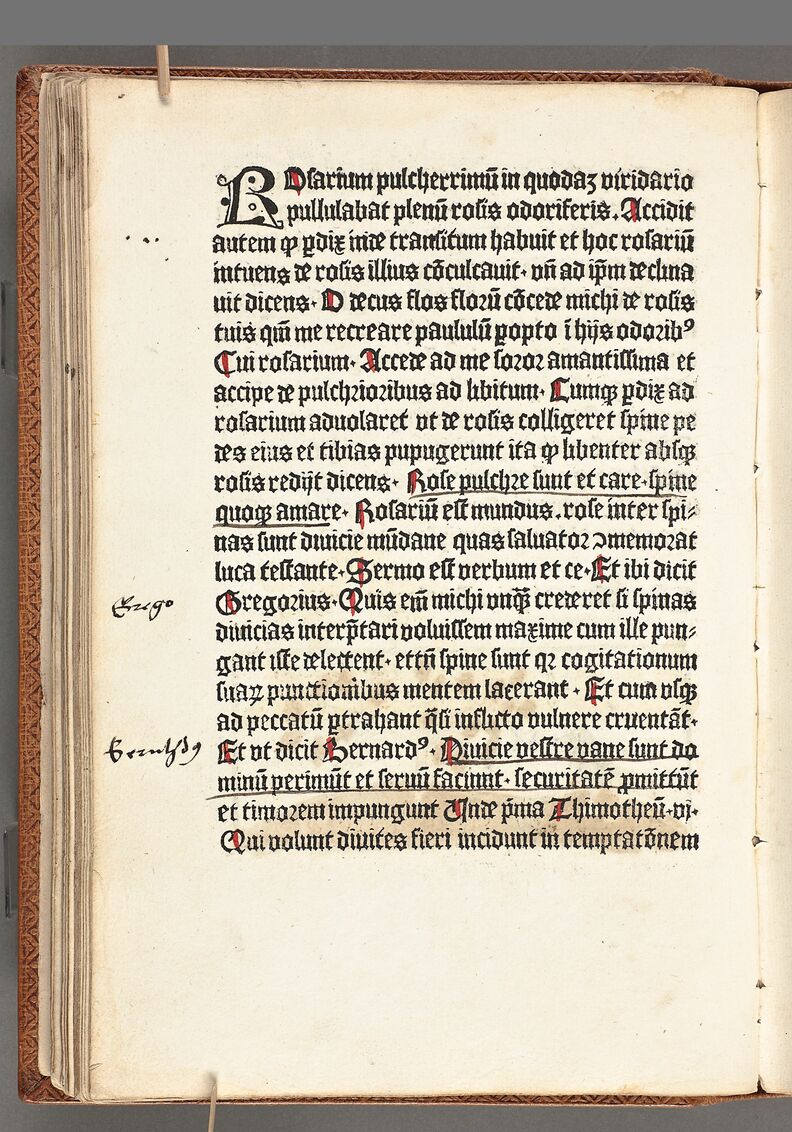 ROsarium pulcherrimū in quodaȝ viridario
pullulabat plenū rosis odoriferis. Accidit
autem ꝙ ꝑdix inde transitum habuit et hoc rosariū
intuens de rosis illius cōculcauit. vñ ad ip̄m declina
uit dicens. O decus flos florū cōcede michi de rosis
tuis qm̄ me recreare paululū ꝑopto ī hijs odoribꝰ
Cui rosarium. Accede ad me soror amantissima et
accipe de pulchrioribus ad libitum. Cumqꝫ ꝑdix ad
rosarium aduolaret vt de rosis colligeret spine pe
des eius et tibias pupugerunt ita ꝙ libenter absqꝫ
rosis redijt dicens. Rose pulchre sunt et care. spine
quoqꝫ amare. Rosariū est mundus. rose inter spi⸗
nas sunt diuicie mūdane quas saluator ꝯmemorat
luca testante. Sermo est verbum et ce. Et ibi dicit
Grego
Gregorius. Quis em̄ michi vnqꝫ̄ crederet si spinas
diuicias interp̄tari voluissem maxime cum ille pun⸗
gant iste delectent. et tn̄ spine sunt qꝛ cogitationum
suaꝝ punctionibus mentem lacerant. Et cum vsqꝫ
ad peccatū ꝑtrahant q̄si inflicto vulnere cruentāt.
Bernhardꝰ
Et vt dicit Bernardꝰ. Diuicie vestre vane sunt do
minū perimūt et seruū faciunt. securitatē ꝓmittūt
et timorem impungunt Unde p̄ma Thimotheū. vj.
Qui volunt diuites fieri incidunt in temptatōnem